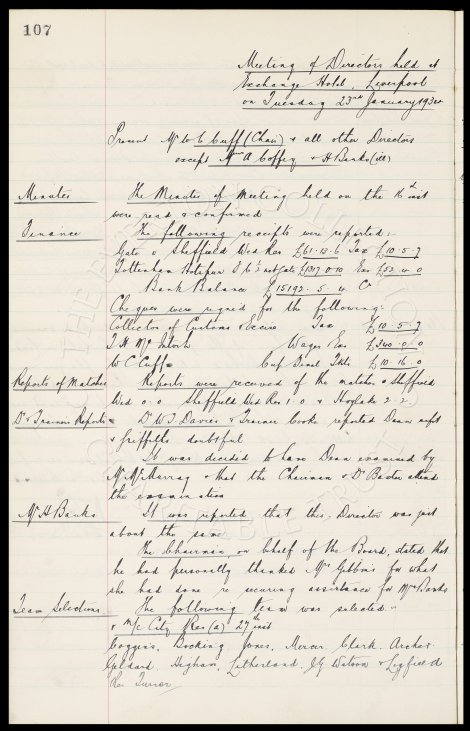 107
Meeting of Directors held at
Exchange Hotel, Liverpool
on Tuesday 23rd January 1934
Present Mr W C Cuff (Chair) & all other Directors
except Mr A Coffey & H Banks (ill)
Minutes The Minutes of Meeting held on the 16th inst
were read & confirmed
Finance The following receipts were reported:-
Gate v Sheffield Wed Res £61.13.6 Tax £10.5.7
Tottenham Hotspur £52.4.0
Bank Balance £15192.5.4 Cr
Cheques were signed for the following:-
Collector of Customs & Excise Tax £10.5.7
Wages £340.0.0
W C Cuff Cup Final Tkts £10.16.0
Reports of Matches Reports were received of the matches v Sheffield
Wed 0.0 Sheffield Wed Res 1.0 & Hoylake 2.2
Dr & Trainers Reports Dr W J Davies & Trainer Cooke reported Dean unfit
& Griffiths doubtful
It was decided to have Dean examined by
Mr McMurray & that the Chairman & Dr Baxter attend
the examination
Mr H Banks It was reported that this Director was just
about the same
The Chairman, on behalf of the Board, stated that
he had personally thanked Mrs Gibbons for what
she had done re securing assistance for Mrs Banks
Team Selections The following team was selected:-
v M/c City Res (a) 27th inst
Coggins, Bocking Jones, Mercer Clark Archer
Geldard Higham, Leatherland, J G Watson &
Res Turner